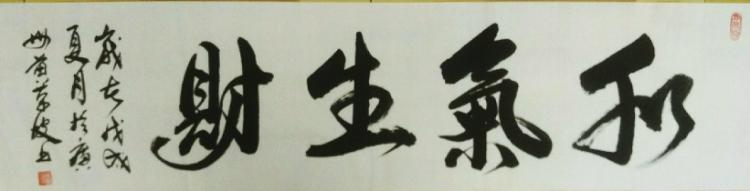 和氣生財
歲在戊戌
夏月於廣
州黃華坡書